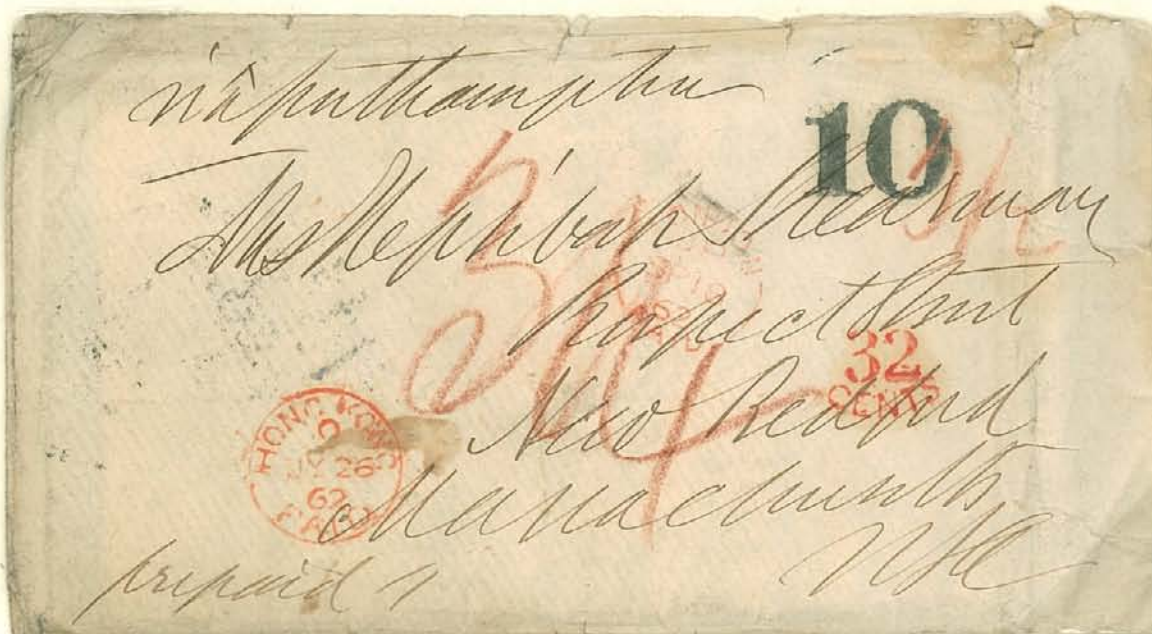 viâ Southampton
10
Mrs Hephzibah Stearman
Prospect Street
New Bedford
Massachusetts
USA
prepaid
32
CENTS
HONG KONG
JY 26
62
PAID